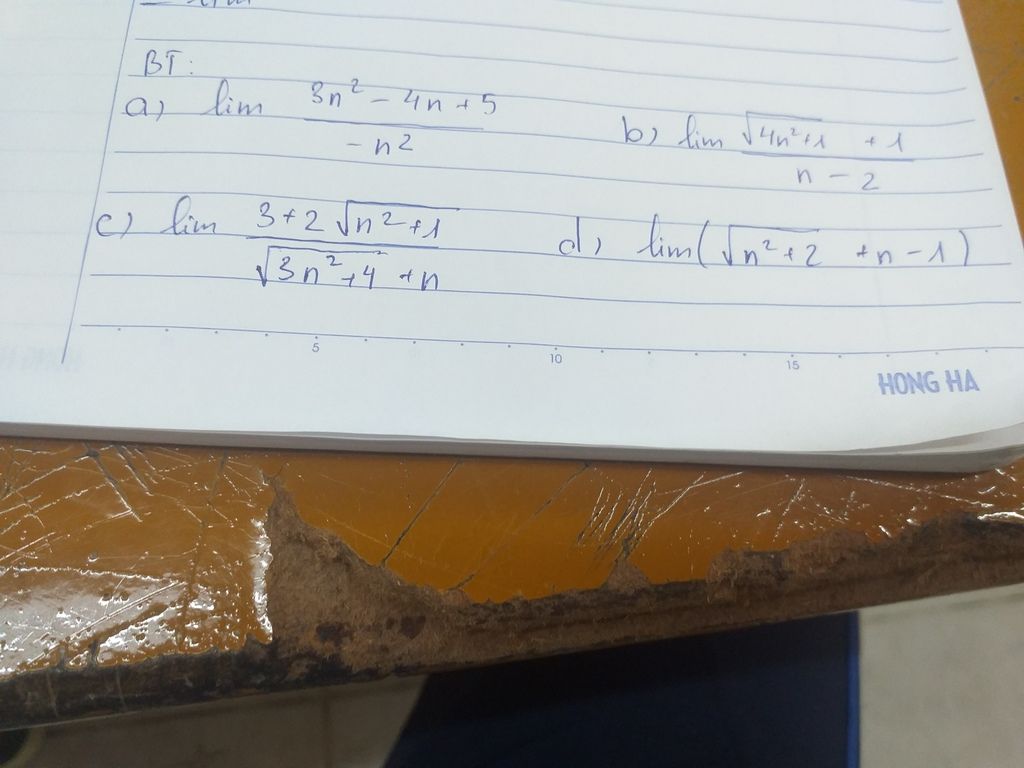 BT:
a) lim (3n² - 4n + 5)/(-n²)
b) lim (√(4n²+1) + 1)/(n - 2)
c) lim (3 + 2√(n²+1))/(√(3n²+4) + n)
d) lim(√(n²+2) + n - 1)
5 10 15
HONG HA